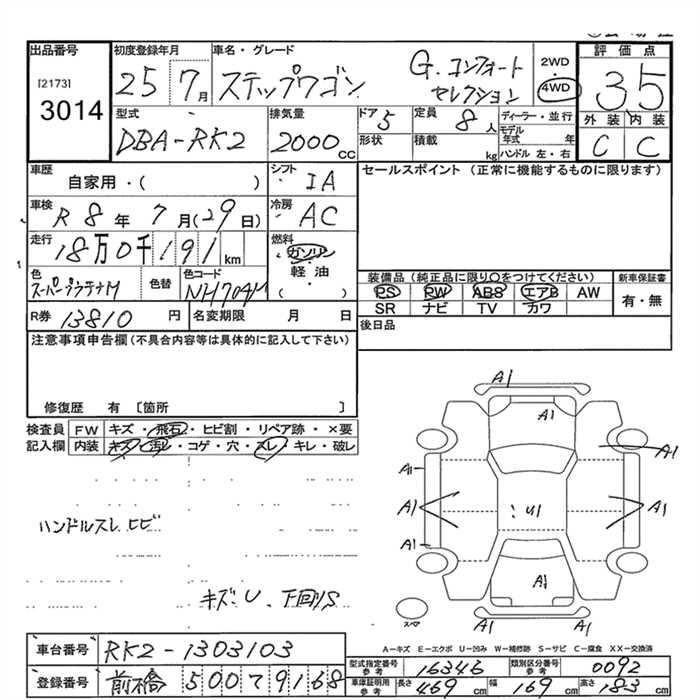 出品番号
[2173]
3014
初度登録年月
25 7月
車名・グレード
ステップワゴン G.コンフォートセレクション
2WD
4WD
評価点
35
外装 内装
C C
型式
DBA-RK2
排気量
2000cc
ドア 5
形状
定員 8人
積載 kg
ディーラー・並行
モデル年式 年
ハンドル 左・右
車歴
自家用・( )
シフト
IA
セールスポイント (正常に機能するものに限ります)
車検
R8年7月(29日)
冷房
AC
走行
18万0千191km
燃料
ガソリン
軽・油
( )
色
スーパープラチナM
色替
色コード
NH704M
装備品(純正品に限り○をつけてください)
PS PW ABS エアB AW
SR ナビ TV カワ
新車保証書
有・無
R券 13810円
名変期限 月 日
後日品
注意事項申告欄(不具合内容等は具体的に記入して下さい)
修復歴 有 〔箇所 〕
検査員記入欄
FW キズ・飛石・ヒビ割・リペア跡・×要
内装 キズ・汚レ・コゲ・穴・スレ・キレ・破レ
ハンドルスレ ヒビ
キズ・U、下回りS
A1
A1
A1
A1
A1
U1
A1
A1
A1
A1
スペア
A-キズ E-エクボ U-凹み W-補修跡 S-サビ C-腐食 XX-交換済
車台番号 RK2-1303103
登録番号 前橋 500 7 9168
型式指定番号 参考 16346
類別区分番号 参考 0092
車庫証明用 参考 長さ 469cm 幅 169cm 高さ 183cm